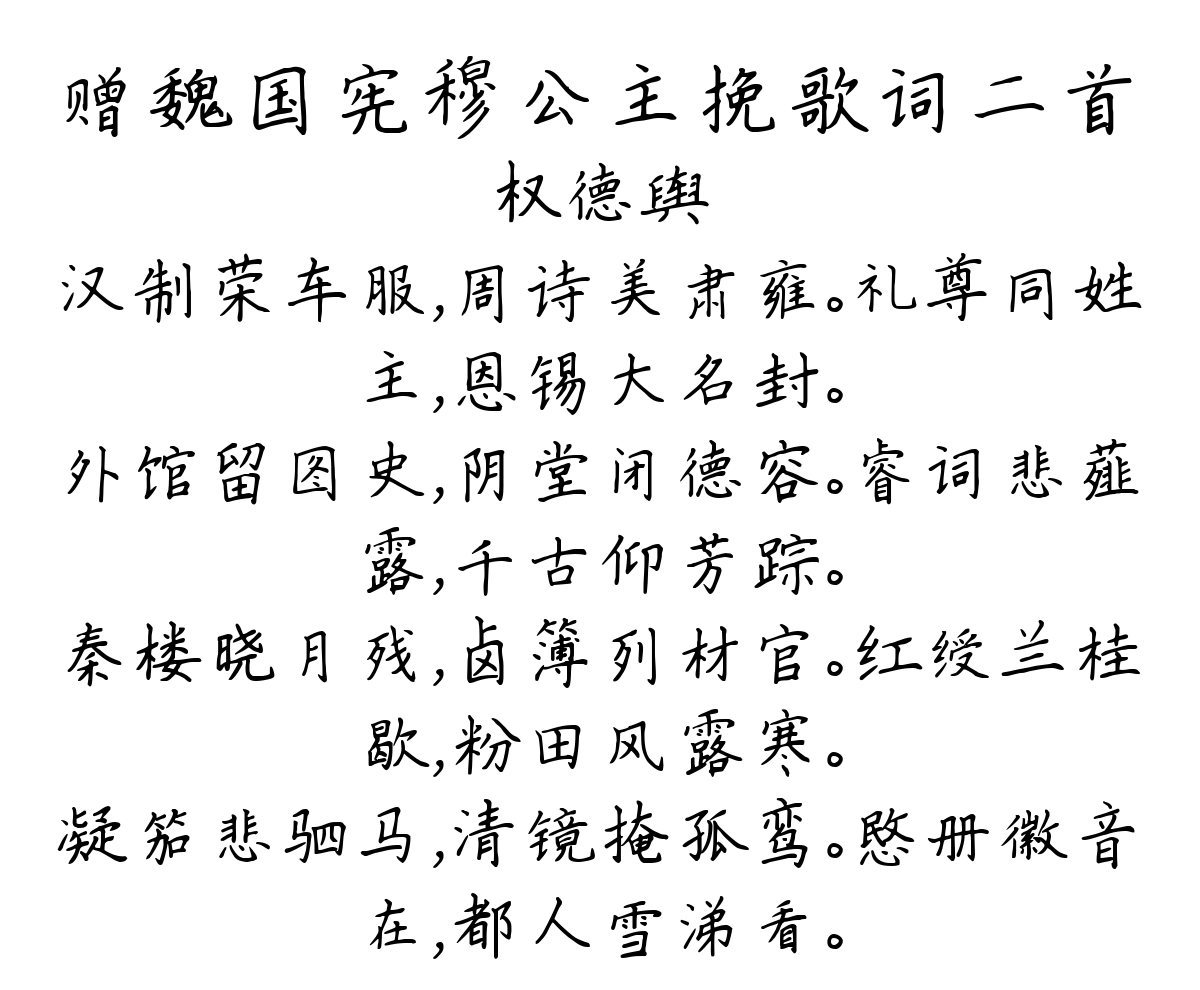 赠魏国宪穆公主挽歌词二首
权德舆
汉制荣车服,周诗美肃雍。礼尊同姓
主,恩锡大名封。
外馆留图史,阴堂闭德容。睿词悲薤
露,千古仰芳踪。
秦楼晓月残,卤簿列材官。红绶兰桂
歇,粉田风露寒。
凝笳悲驷马,清镜掩孤鸾。愍册徽音
在,都人雪涕看。